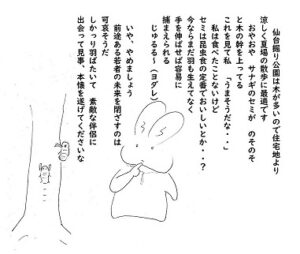 仙台堀り公園は木が多いので住宅地より
涼しく夏場の散歩に最適です
おやおや サナギのセミが のそのそ
と木の幹を上ってる
これを見て私 「うまそうだな・・」
私は食べたことないけど
セミは昆虫食の定番でおいしいとか・・?
今ならまだ羽も生えてなく
手を伸ばせば容易に
捕まえられる
じゅるる~(ヨダレ)
いや、やめましょう
前途ある若者の未来を閉ざすのは
可哀そうだ
しっかり羽ばたいて 素敵な伴侶に
出会って見事、本懐を遂げてくださいな